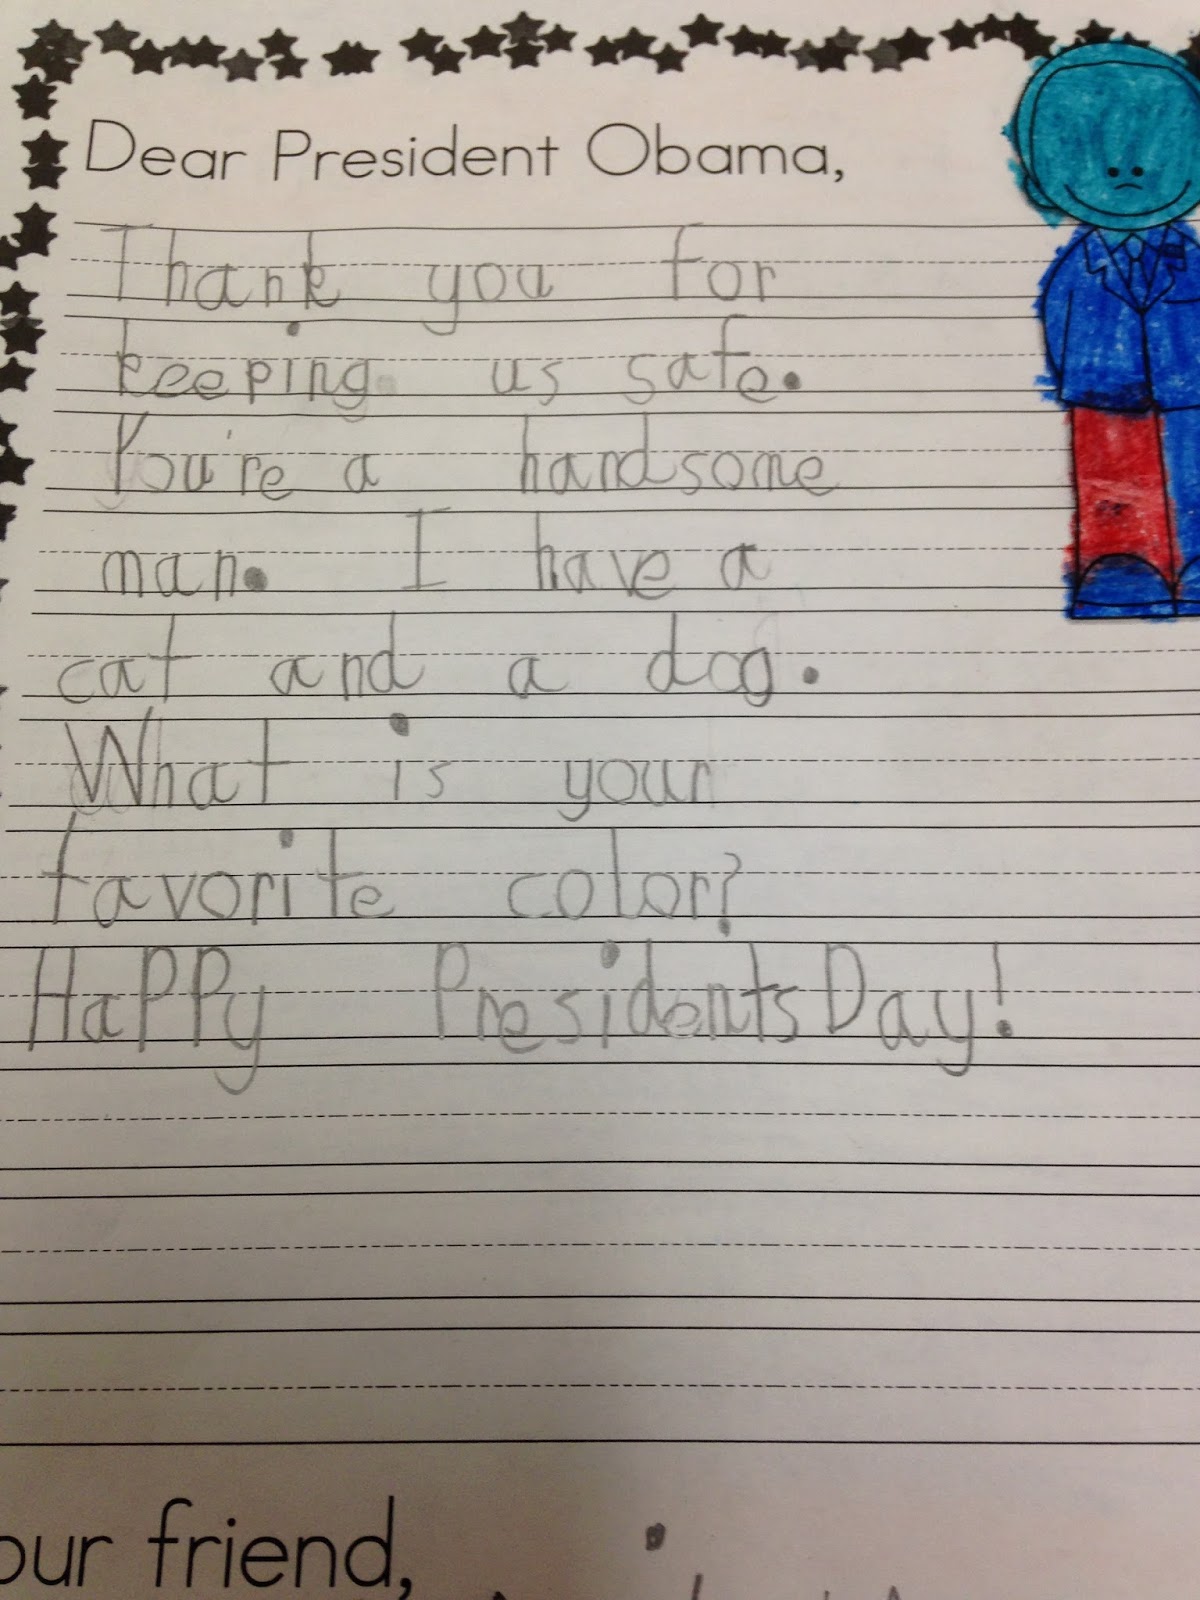 Dear President Obama,
Thank you for
keeping us safe.
You're a handsome
man. I have a
cat and a dog.
What is your
favorite color?
HaPPy Presidents Day!
our friend,